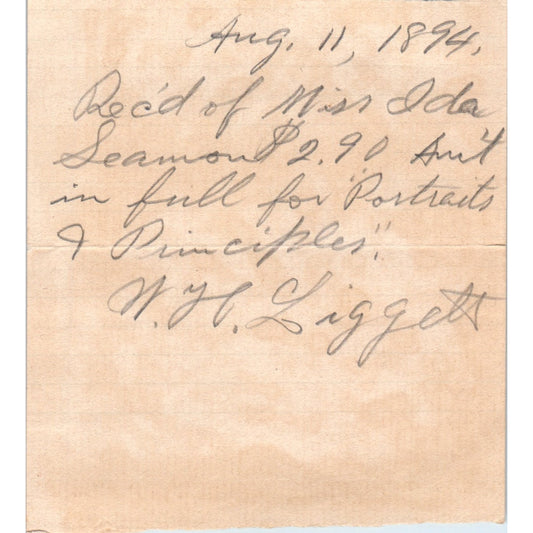 Aug. 11, 1894.
Rec'd of Miss Ida
Seamon $2.90 Am't
in full for "Portraits
& Principles".
W. H. Liggett